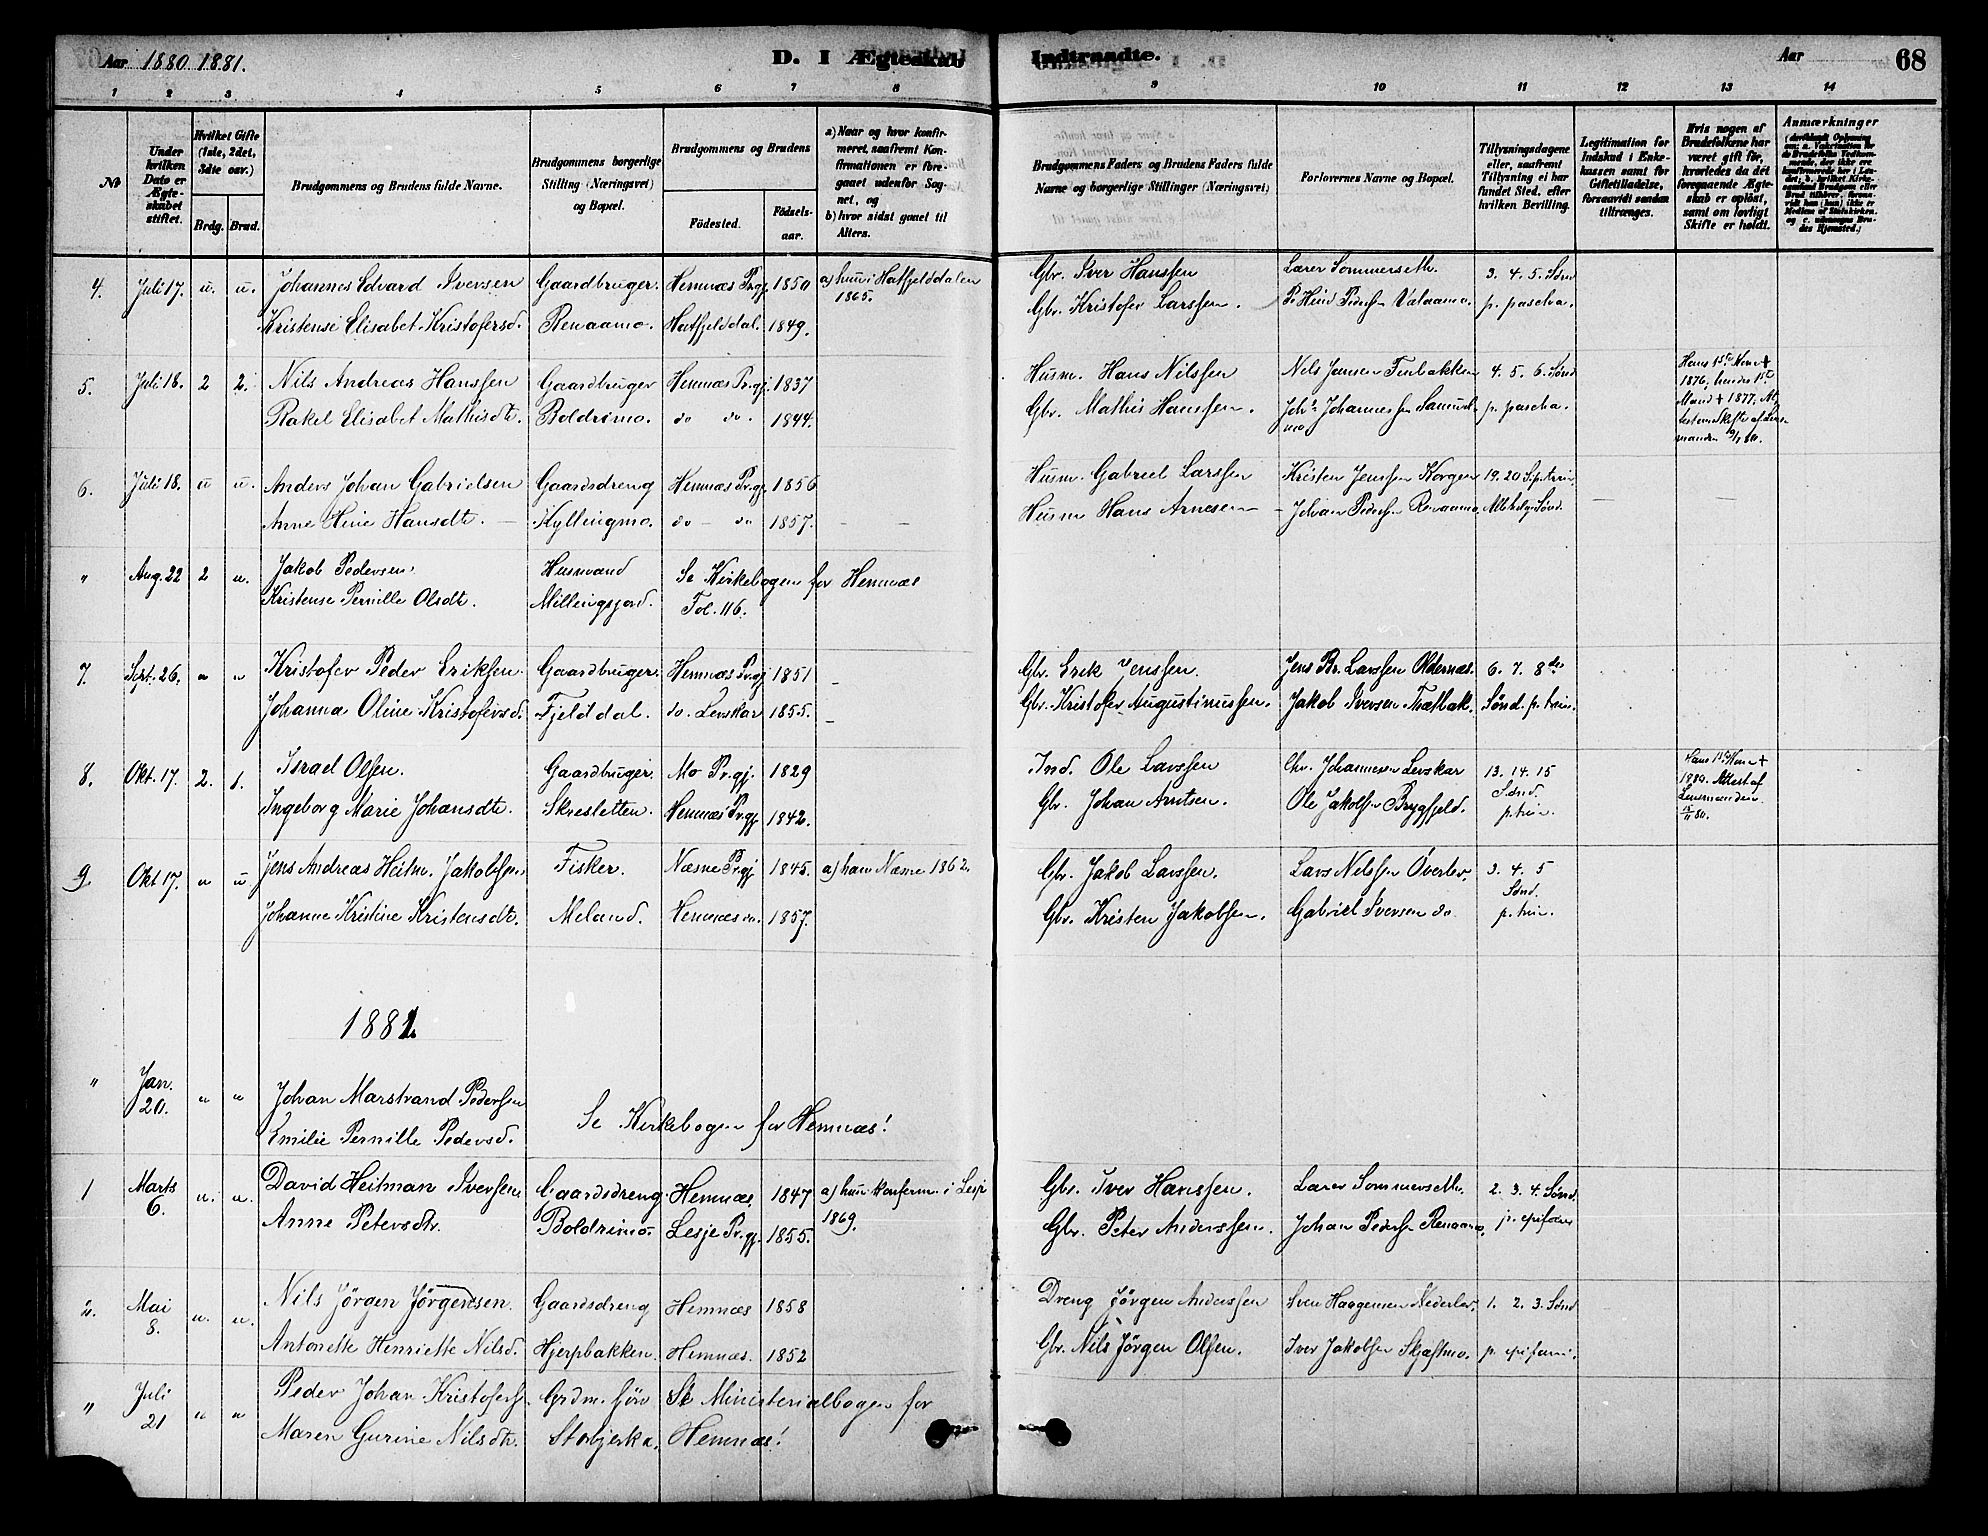 Aar 1880 1881.
D. I Ægteskab Indtraadte.
Aar
68
1 2 3 4 5 6 7 8 9 10 11 12 13 14
№
Under hvilken Dato er Ægteskabet stiftet.
Hvilket Gifte (1ste, 2det, 3die osv.)
Brdg. Brud.
Brudgommens og Brudens fulde Navne.
Brudgommens borgerlige Stilling (Næringsvei) og Bopæl.
Brudgommens og Brudens
Fødested.
Fødselsaar.
a) Naar og hvor konfirmeret, saafremt Konfirmationen er foregaaet udenfor Sognet, og
b) hvor sidst gaaet til Alters.
Brudgommens Faders og Brudens Faders fulde Navne og borgerlige Stillinger (Næringsvei)
Forlovernes Navne og Bopæl.
Tillysningsdagene eller, saafremt Tillysning ei har fundet Sted, efter hvilken Bevilling.
Legitimation for Indskud i Enkekassen samt for Giftetilladelse, forsaavidt saadan tiltrænges.
Hvis nogen af Brudefolkene har været gift før, hvorledes da det foregaaende Ægteskab er opløst, samt om lovligt Skifte er holdt.
Anmærkninger
4. Juli 17. u. u. Johannes Edvard Iversen Gaardbruger. Hemnæs Pr.gj. 1850 a) hun i Hatfjelddalen 1865. Gbr. Iver Hanssen Lærer Sommerseth. 3. 4. 5. Sønd
Kristense Elisabet Kristofersd. Renaamo. Hatfjelddal. 1849. Gbr. Kristofer Larssen. Pedersen p. pascha.
5. Juli 18. 2 2. Nils Andreas Hanssen Gaardbruger Hemnæs Pr.gj. 1837 Husm. Hans Nilssen Nils Jensen Finbakken 4. 5. 6. Sønd Hans 1ste Kone † 1876, hendes 1ste Mand † 1877,
Rakel Elisabet Mathisdt. Boldrimo. do do. 1844. Gbr. Mathis Hanssen. Johs Johannessen p. pascha. Skifte af Lensmanden
6. Juli 18. u u. Anders Johan Gabrielsen Gaardsdreng Hemnæs Pr.gj. 1856 Husm. Gabriel Larssen Kristen Jenssen Korgen 19. 20 S.p.trin,
Anne Hansdt. — Kyllingmo. do — do 1857. — — Husm Hans Arnesen — Johan Pedersen Renaamo, Sønd.
" Aug. 22 2 u. Jakob Pedersen. Husmand Se Kirkebogen for Hemnæs
Kristense Pernille Olsdt. Millingsjord. Fol. 116.
7. Sept. 26. " " Kristofer Peder Eriksen. Gaardbruger. Hemnæs Pr.gj 1851 — Gbr. Erik Jenssen. Jens Br. Larssen Oldernæs. 6. 7. 8de
Johanna Oline Kristofersd. Fjelddal. do. Levskar 1855. — Gbr. Kristofer Augustinussen. Jakob Iversen Sønd. p. trin.
8. Okt. 17. 2. 1. Israel Olsen. Gaardbruger. Mo Pr.gj. 1829 Ind. Ole Larssen Chr. Johannesen Levskar 13. 14. 15 Sønd. Hans 1ste Kone † 1880. Attest af Lensmanden
Ingeborg Marie Johansdt. Skresletten. Hemnæs Pr.gj 1842. Gbr. Johan Arntsen. Ole Jakobsen Brygfjeld. p. trin.
9. Okt 17. " u Jens Andreas Heitm. Jakobsen Fisker. Næsne Pr.gj 1845. a) han Næsne 1862. Gbr. Jakob Larssen. Lars Nilssen Øverlev. 3. 4. 5 Sønd.
Johanne Kristine Kristensdt. Meland. Hemnæs do. 1857. Gbr. Kristen Jakobsen. Gabriel Iversen do p. trin.
1881.
" Jan. 20. " " Johan Marstrand Pedersen
Emilie Pernille Pedersd. Se Kirkebogen for Hemnæs!
1 Marts 6. u. u. David Heitman Iversen Gaardsdreng. Hemnæs. 1847 a) hun konferm. i Lesje 1869. Gbr. Iver Hanssen. Lærer Sommerseth. 2. 3. 4. Sønd.
Anne Petersdtr. Boldrimo. Lesje Pr.gj. 1855. Gbr. Peter Anderssen. Johan Pedersen Renaamo, p. epifani
2. Mai 8. u. u. Nils Jörgen Jörgensen. Gaardsdreng Hemnæs 1858 Dreng Jörgen Anderssen Sven Haagensen Nederlev. 1. 2. 3. Sønd
Antonette Henriette Nilsd. Hjerpbakken. Hemnæs. 1852 Gbr. Nils Jörgen Olsen. Iver Jakobsen Skjaftmo. p. epifani.
" Juli 21 " " Peder Johan Kristofers. Grdm. Se Ministerialbogen for
Maren Gurine Nilsdt. Storbjerka. Hemnæs!